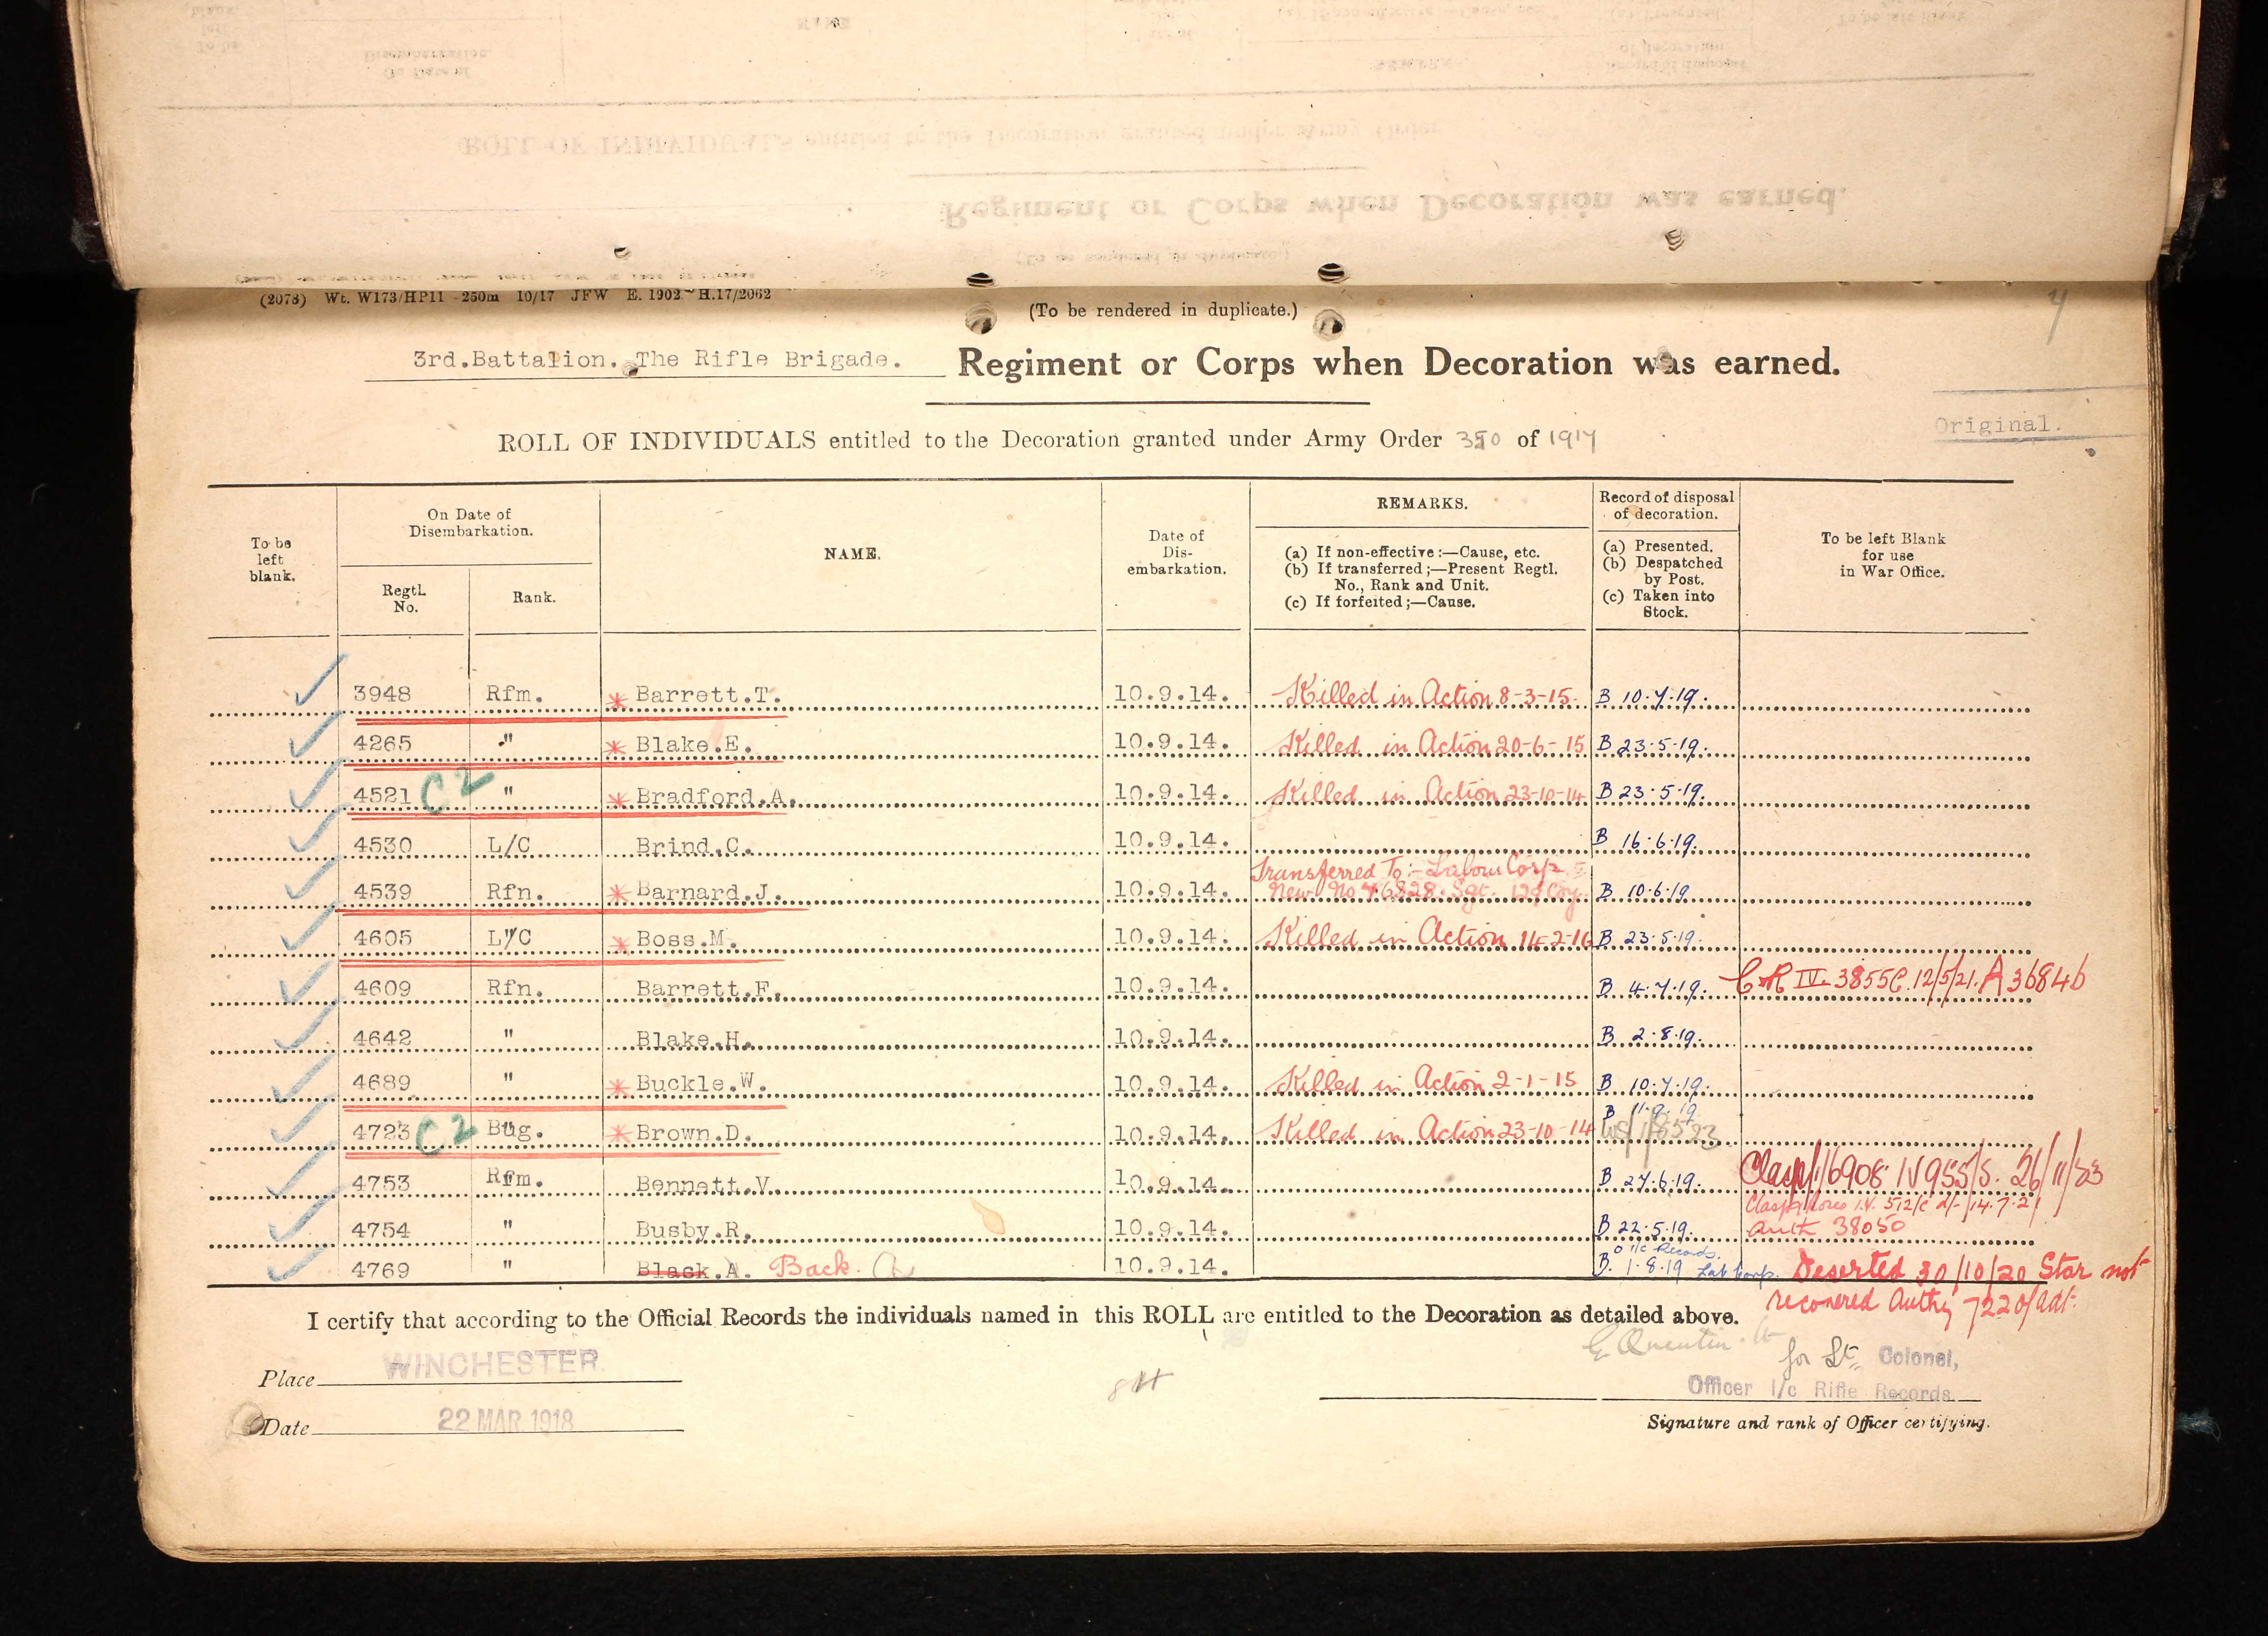 (2078) Wt. W173/HP11 250m 10/17 JFW E. 1902 H.17/2062
(To be rendered in duplicate.)
3rd.Battalion. The Rifle Brigade. Regiment or Corps when Decoration was earned.
Original.
ROLL OF INDIVIDUALS entitled to the Decoration granted under Army Order 350 of 1917
To be left blank.
On Date of Disembarkation.
Regtl. No.
Rank.
NAME.
Date of Dis-
embarkation.
REMARKS.
(a) If non-effective :—Cause, etc.
(b) If transferred ;—Present Regtl.
No., Rank and Unit.
(c) If forfeited ;—Cause.
Record of disposal
of decoration.
(a) Presented.
(b) Despatched
by Post.
(c) Taken into
Stock.
To be left Blank
for use
in War Office.
3948 Rfm. * Barrett.T. 10.9.14. Killed in Action 8-3-15. B 10.7.19.
4265 " * Blake.E. 10.9.14. Killed in Action 20-6-15 B 23.5.19.
4521 C2 " * Bradford.A. 10.9.14. Killed in Action 23-10-14 B 23.5.19.
4530 L/C Brind.C. 10.9.14. B 16.6.19.
Transferred To:- Labour Corps
4539 Rfn. * Barnard.J. 10.9.14. New No 46828. Sgt. Coy. B 10.6.19.
4605 L/C * Boss.M. 10.9.14. Killed in Action 14-2-16 B 23.5.19.
4609 Rfn. Barrett.F. 10.9.14. B 4.7.19. IV. 3855C. 12/5/21. A 36846
4642 " Blake.H. 10.9.14. B 2.8.19.
4689 " * Buckle.W. 10.9.14. Killed in Action 2-1-15 B 10.7.19.
B 11.9.19
4723 C2 Bug. * Brown.D. 10.9.14. Killed in Action 23-10-14
4753 Rfm. Bennett.V. 10.9.14. B 27.6.19. Clasp 1/6908 IV 955/S. 26/11/23
Clasp I.V. 512/C d/- 14.7.21
4754 " Busby.R. 10.9.14. B 22.5.19. Auth 38050
O i/c Records.
4769 " Black.A. Back. 10.9.14. B. 1.8.19 Lab Corp. Deserted 30/10/20 Star not
recovered Authy 7220/Adt.
I certify that according to the Official Records the individuals named in this ROLL are entitled to the Decoration as detailed above.
Place WINCHESTER.
for Lt. Colonel,
Officer i/c Rifle Records.
Date 22 MAR 1918
Signature and rank of Officer certifying.